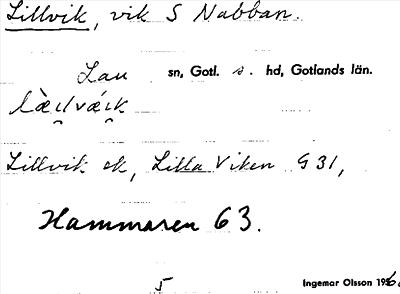 Lillvik, vik S Nabban.
Lau sn, Gotl. s. hd, Gotlands län.
lȁi̯lvái̯k
Lillvik ek, Lilla Viken G 31,
Hammaren 63.
5
Ingemar Olsson 196